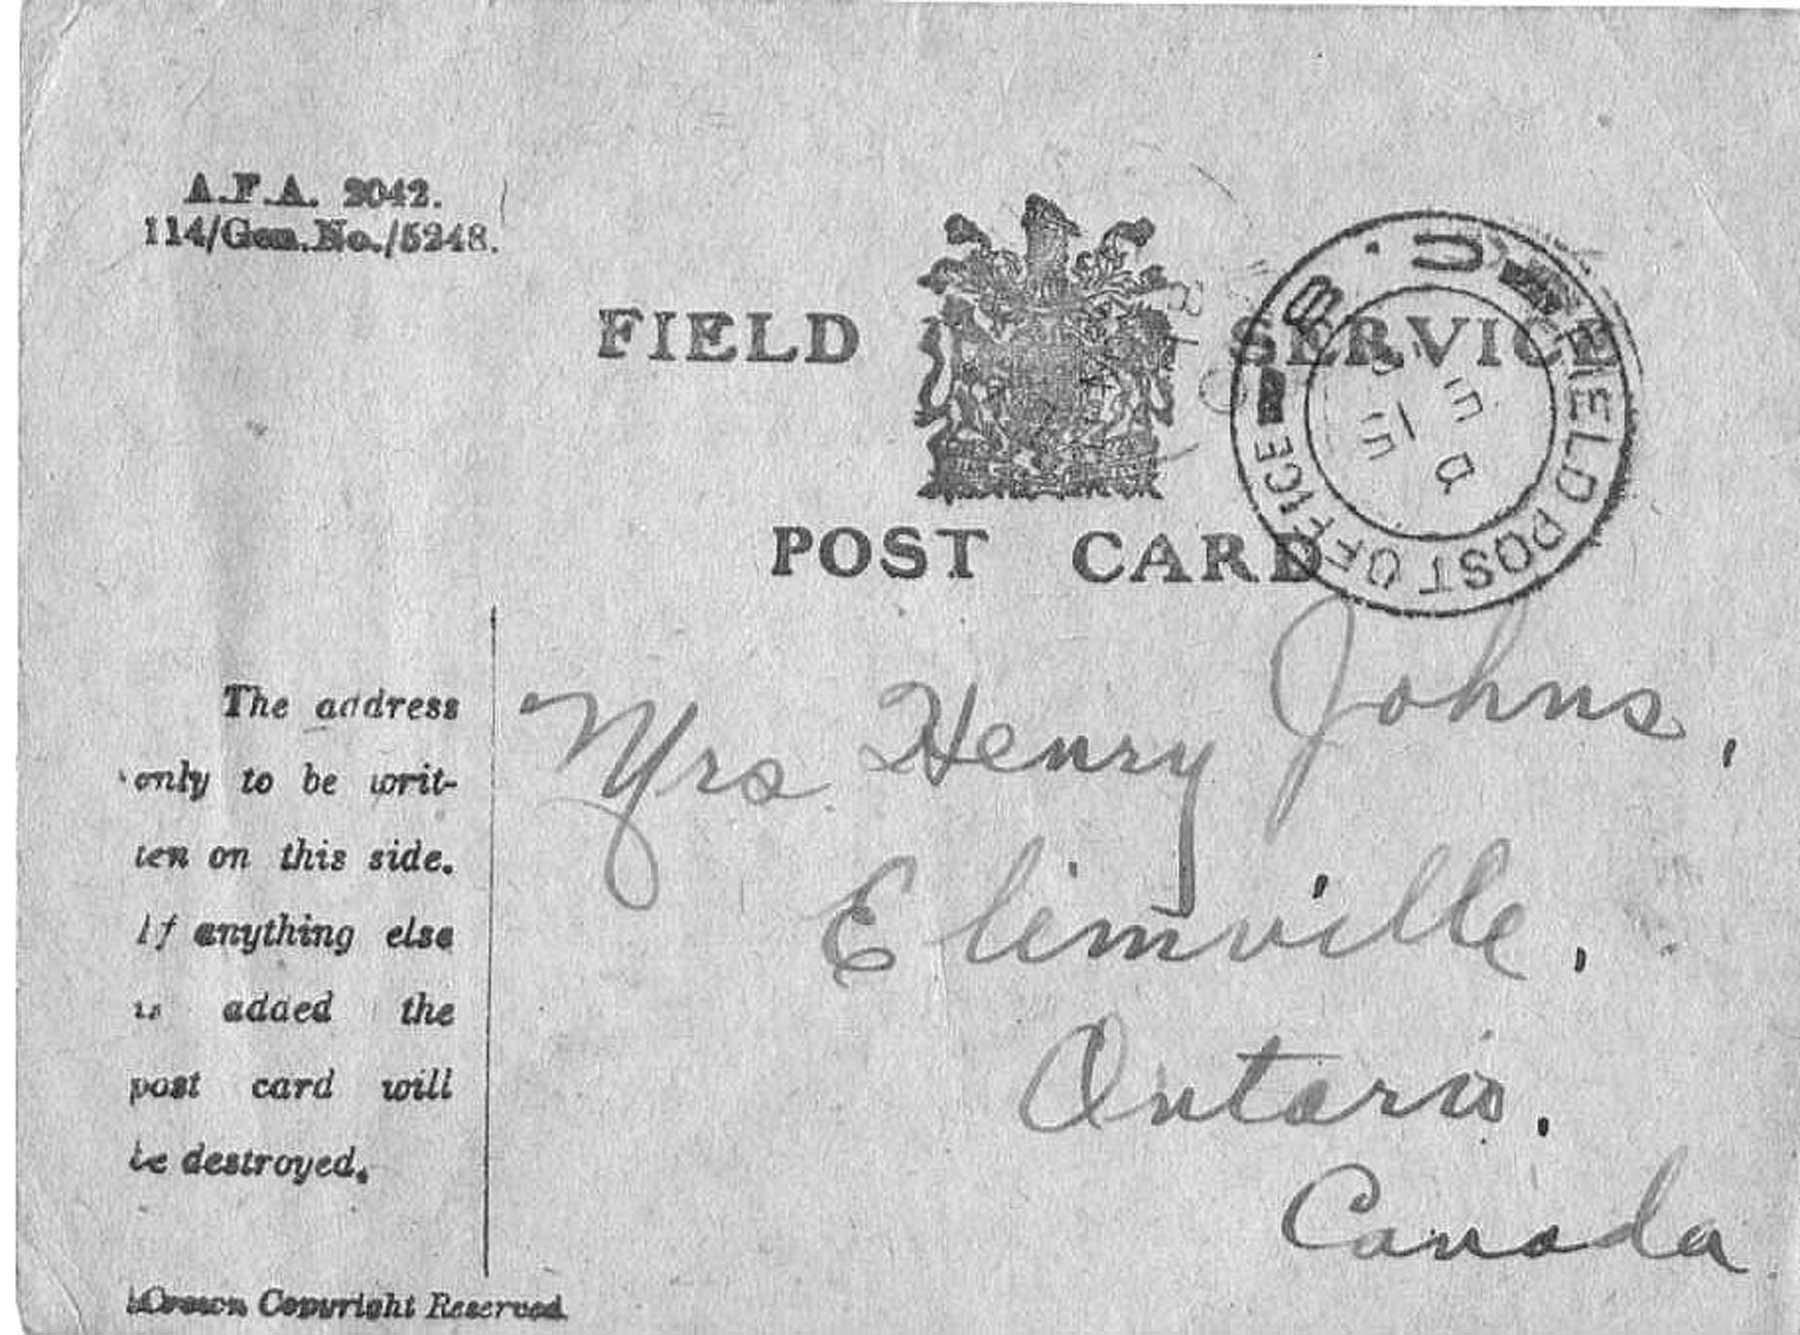 A.F.A. 2042.
114/Gen.No./5248.
FIELD SERVICE
POST CARD
FIELD POST OFFICE
The address
only to be writ-
ten on this side.
If anything else
is added the
post card will
be destroyed.
Mrs Henry Johns,
Elimville,
Ontario,
Canada
Crown Copyright Reserved